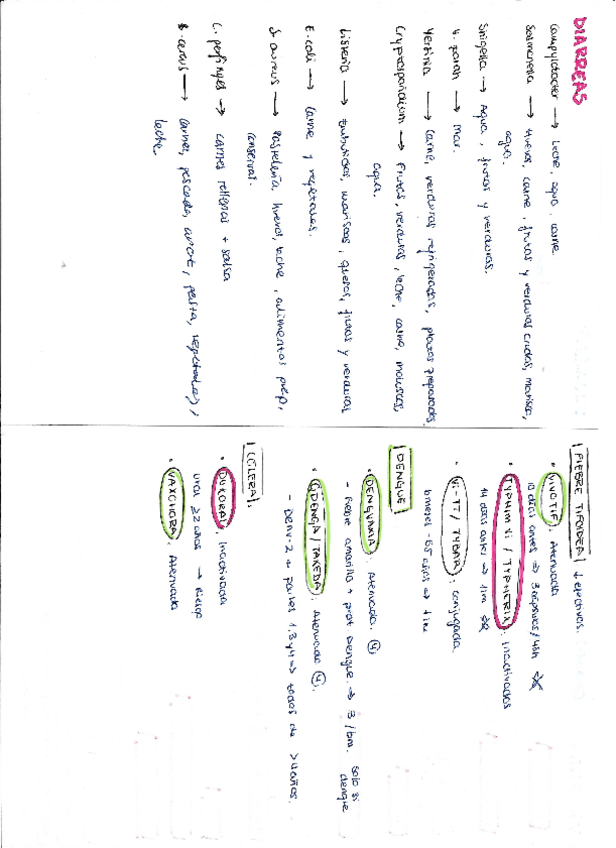 DIARREAS
Campylobacter → Leche, agua, carne
Salmonella → Huevos, carne, frutas y verduras crudas, marisco,
agua.
Shigella → Agua, frutas y verduras.
V. parah → Mar.
Yersinia → Carne, verduras refrigeradas, platos preparados
Cryptosporidium → Frutas, verduras, leche, carne, moluscos,
agua.
Listeria → Embutidos, mariscos, quesos, frutas y verduras
E. coli → Carne y vegetales.
S. aureus → Pastelería, huevo, leche, alimentos prep,
conservas.
C. perfinges → carnes rellenas + salsa
B. cereus → carnes, pescado, arroz, pasta, vegetales,
leche
FIEBRE TIFOIDEA
• VIVOTIF: Atenuada
10 días antes → 3 /48h
• TYPHIM Vi / TYPHERIX: Inactivados
14 días antes → 1 im
• Vi-TT / TYBAR: conjugada.
6 meses - 65 años → 1 im
DENGUE
• DENGVAXIA: Atenuada. (4)
- Fiebre amarilla + prot dengue. → 3 / 6m. solo si
dengue
• QDENGA / TAKEDA: Atenuada (4).
- Denv-2 + 1, 3 y 4 → todos de > 4 años.
CÓLERA
• DUKORAL: Inactivada
oral ≥ 2 años → Riesgo
• VAXCHORA: Atenuada